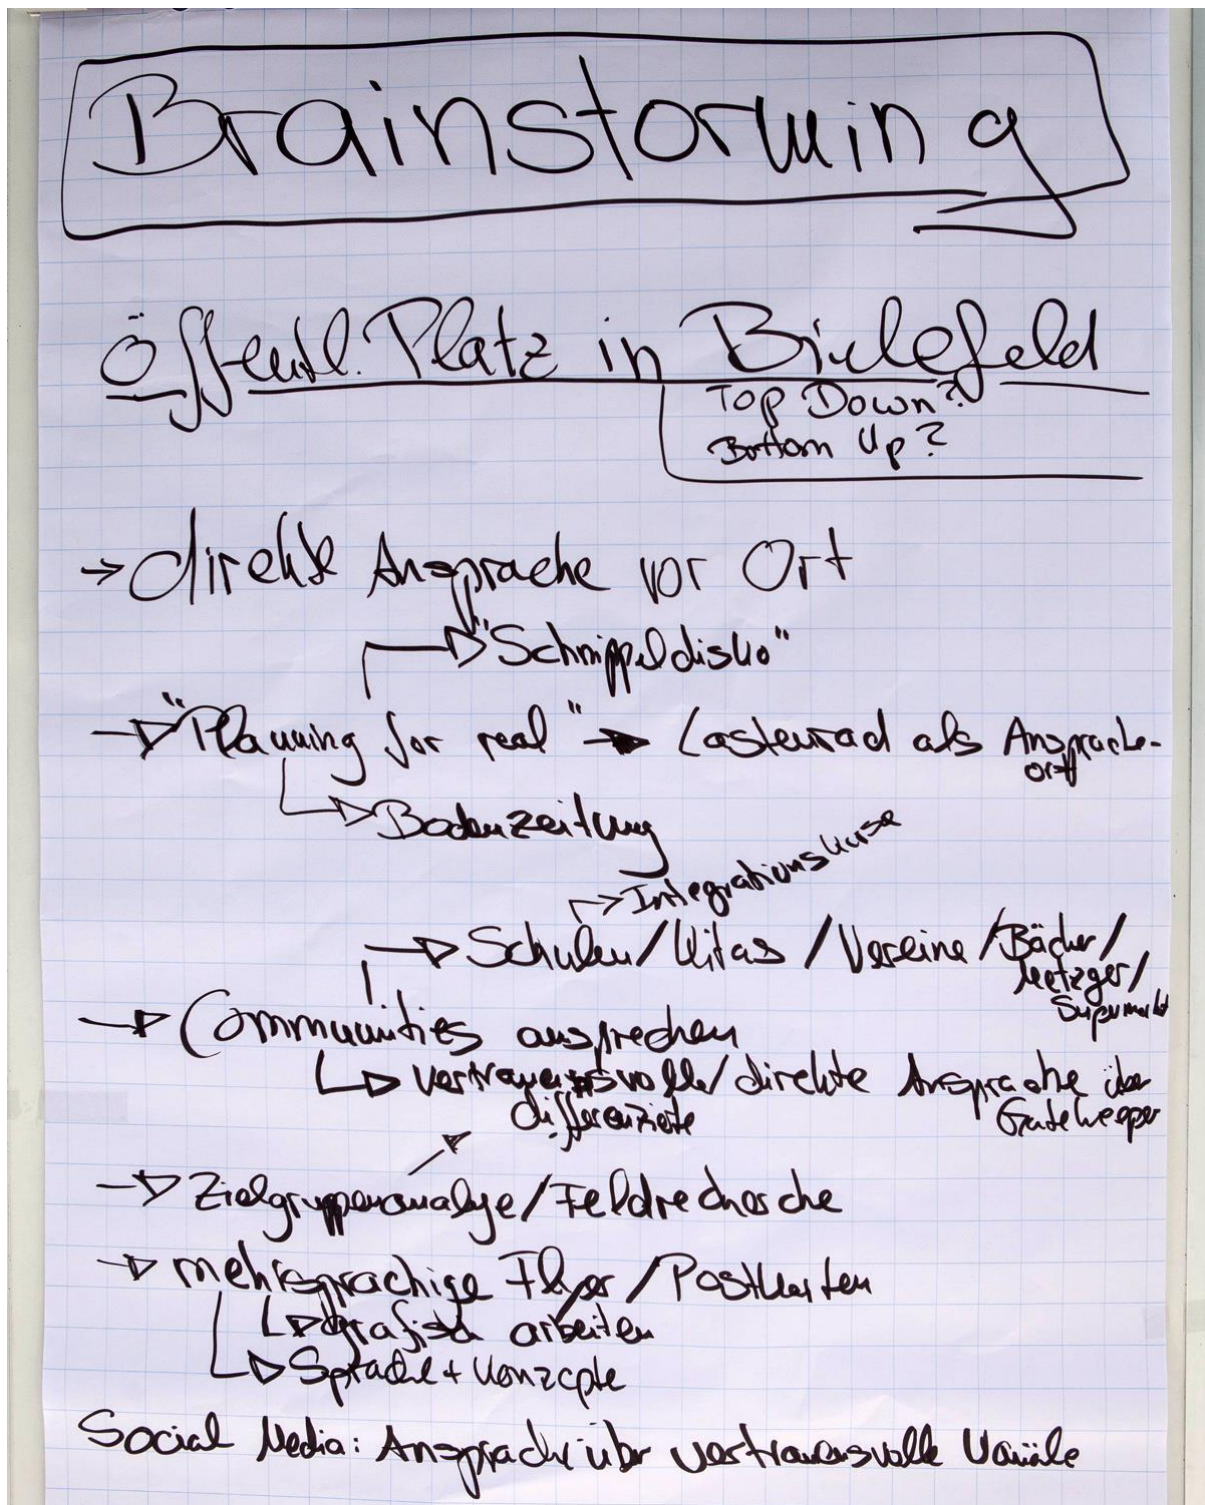 Brainstorming
Öffentl. Platz in Bielefeld
Top Down?
Bottom Up?
→ direkte Ansprache vor Ort
→ "Schnippeldisko"
→ "Planning for real" → Lastenrad als Ansprache-
ort
→ Bodenzeitung
→ Integrationskurse
→ Schulen / Kitas / Vereine / Bäcker /
Metzger /
Supermarkt
→ Communities ansprechen
→ vertrauensvolle / direkte Ansprache über
differenzierte Gatekeeper
→ Zielgruppenanalyse / Feldrecherche
→ mehrsprachige Flyer / Postkarten
→ grafisch arbeiten
→ Sprache + Konzepte
Social Media: Ansprache über vertrauensvolle Kanäle